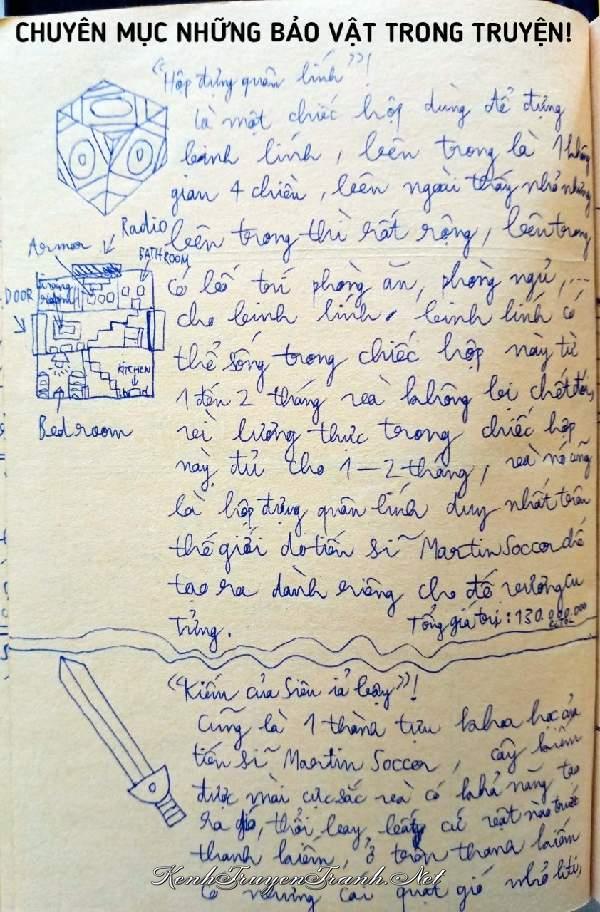 CHUYÊN MỤC NHỮNG BẢO VẬT TRONG TRUYỆN!
"Hộp đựng quân lính"!
Là một chiếc hộp dùng để đựng
binh lính, bên trong là 1 không
gian 4 chiều, bên ngoài thấy nhỏ nhưng
bên trong thì rất rộng, bên trong
có bố trí phòng ăn, phòng ngủ,...
cho binh lính. binh lính có
thể sống trong chiếc hộp này từ
1 đến 2 tháng và không bị chết đói,
vì lương thực trong chiếc hộp
này đủ cho 1-2 tháng, và nó cũng
là hộp đựng quân lính duy nhất trên
thế giới do tiến sĩ Martin Soccer đã
tạo ra dành riêng cho đế vương cu
trứng.
Tổng giá trị: 130.000.000
Armor
Radio
BATHROOM
DOOR
KITCHEN
Bedroom
"Kiếm của Siêu vả bay"!
Cũng là 1 thành tựu khoa học của
tiến sĩ Martin Soccer, cây kiếm
được mài cực sắc và có khả năng tạo
ra gió, thổi bay bất cứ vật nào trước
thanh kiếm, ở trên thanh kiếm
có những cái quạt gió nhỏ li ti,
KenhTruyenTranh.Net